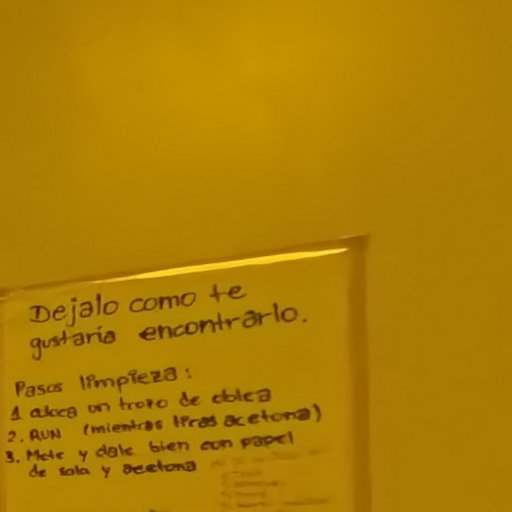 Dejalo como te
gustaria encontrarlo.
Pasos limpieza:
1 aloca un trozo de oblea
2. RUN (mientras tiras acetona)
3. Mete y dale bien con papel
de sala y acetona